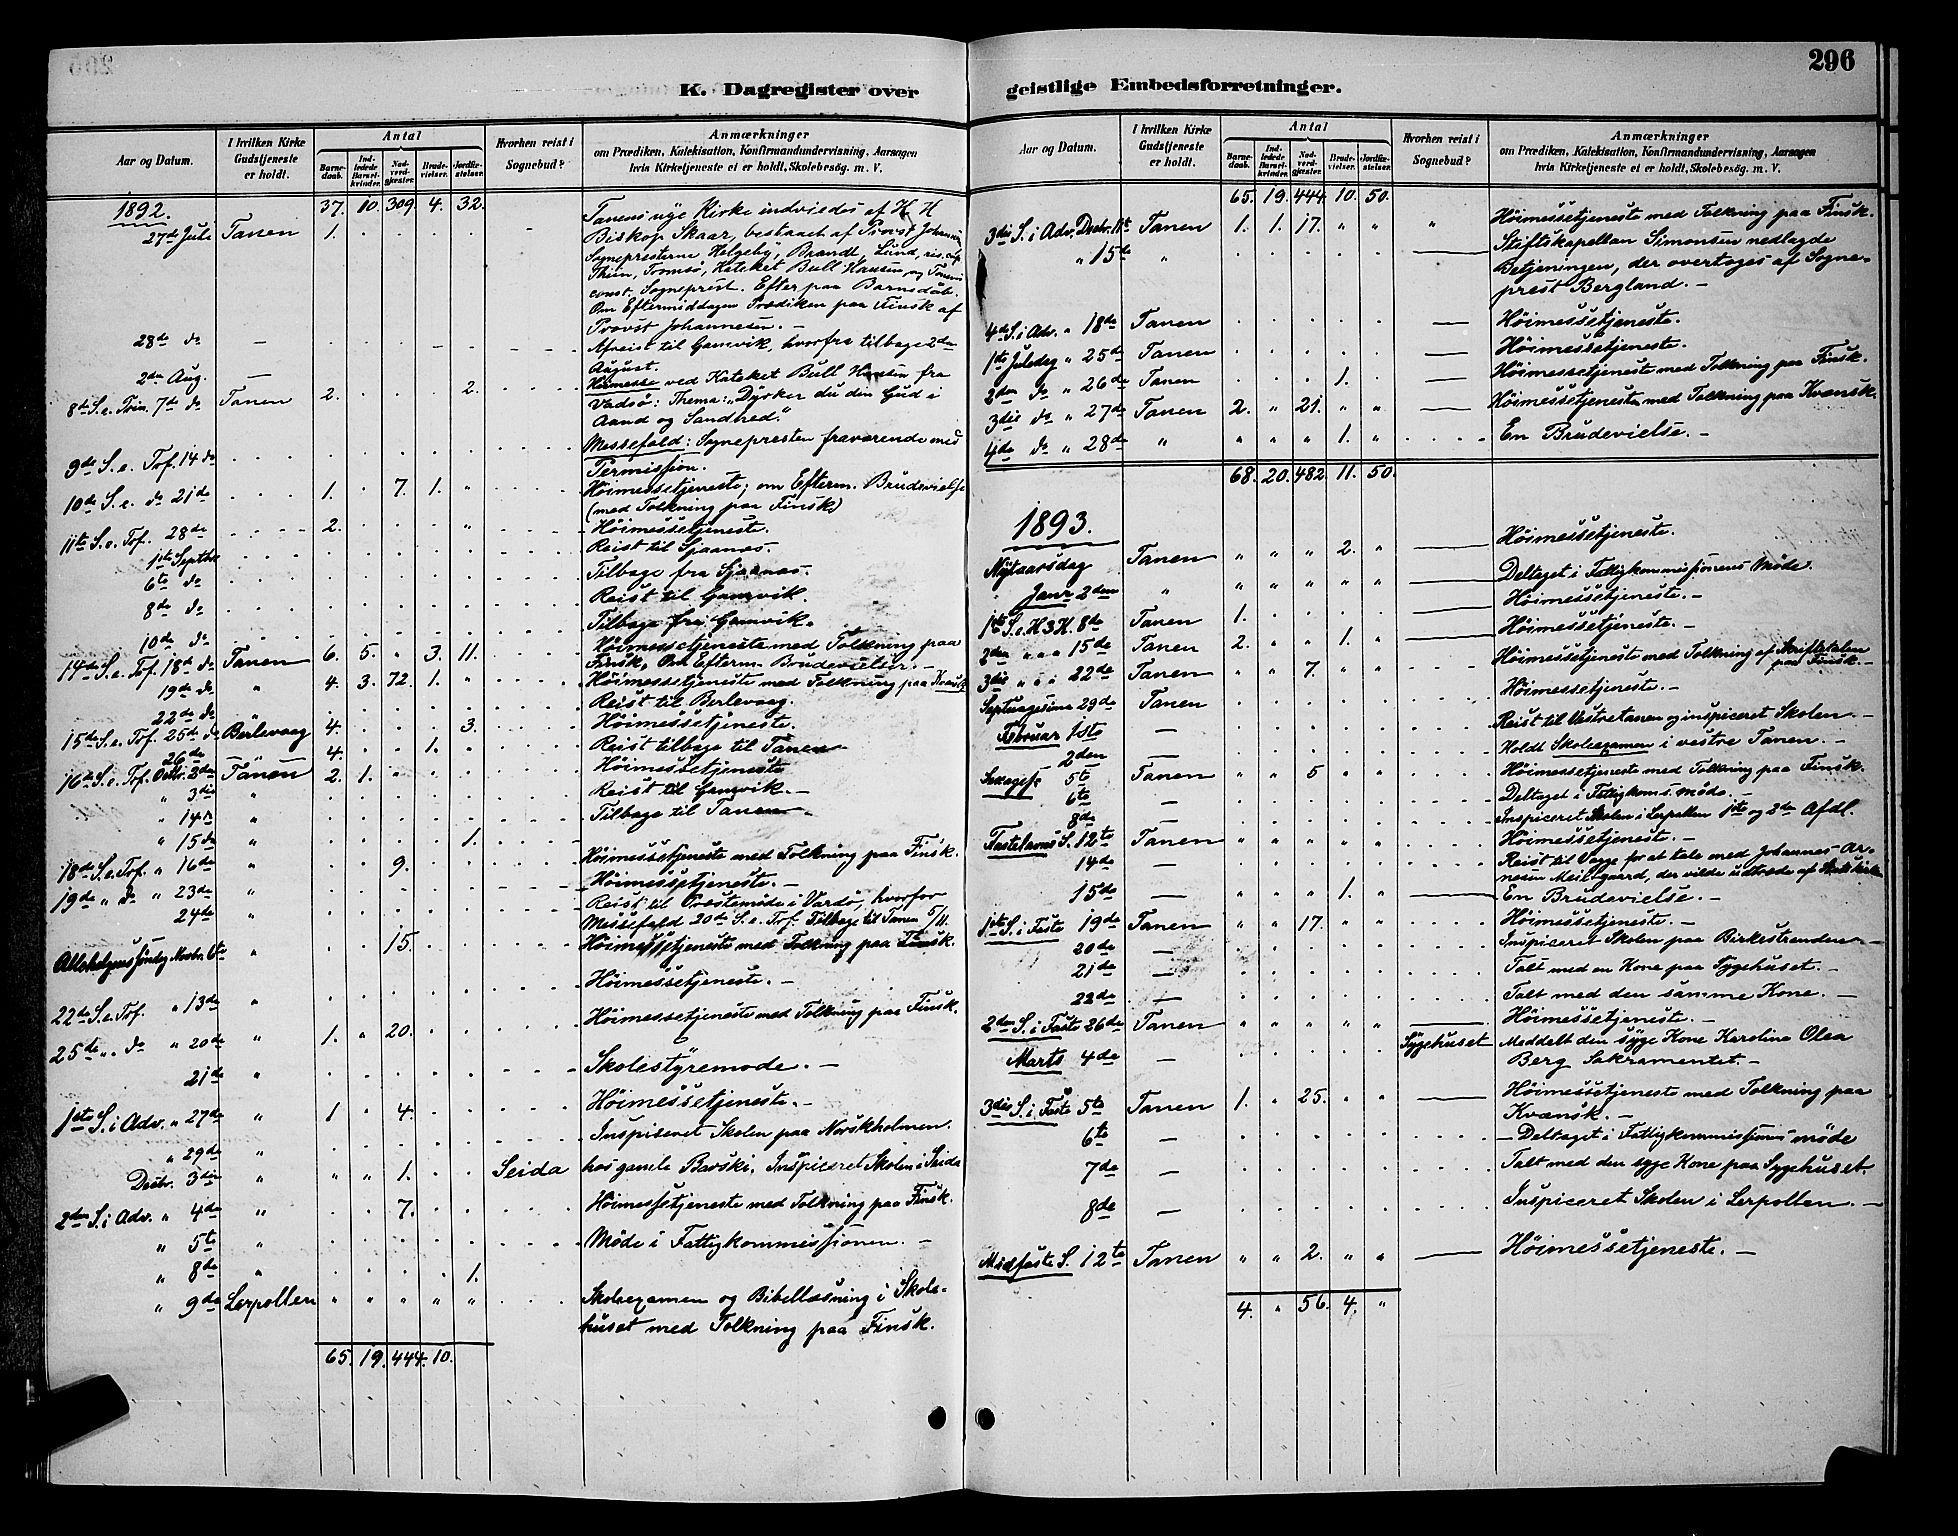 296
K. Dagregister over geistlige Embedsforretninger.
Aar og Datum. | I hvilken Kirke Gudstjeneste er holdt. | Antal | Barnedaab. | Indledede Barselkvinder. | Nadverdgjester. | Brudevielser. | Jordfæstelser. | Hvorhen reist i Sognebud? | Anmærkninger om Prædiken, Katekisation, Konfirmandundervisning, Aarsagen hvis Kirketjeneste ei er holdt, Skolebesøg. m. V.
1892. 37. 10. 309. 4. 32.
27de Juli Tanen 1. Tanens nye Kirke indviedes af H. H
Biskop Skaar, bestaaet af Provst Johannesen,
Sognepresterne Helgeby, Brandt, Lund, res. cap.
Thiin, Tromsö, Kateket Bull Hansen og Tanens
const. Sogneprest. Efter paa Barnedåb.
Om Eftermiddagen Prædiken paa Finsk af
Provst Johannesen. —
28de do — Afreist til Gamvik, hvorfra tilbage 2den
August.
2den Aug. —
8de S. e. Trin. 7de do Tanen 2. 2. Høimesse ved Kateket Bull Hansen fra
Vadsö: Thema: "Dyrker du din Gud i
Aand og Sandhed."
9de S. e. Tref. 14 de Messefald: Sognepresten fraværende med
Permission.
10de S. e. do 21de 1. 7. 1. " Höimessetjeneste; om Efterm. Brudevielse
(med Tolkning paa Finsk)
11te S. e. Tref. 28de 2. " Höimessetjeneste.
1ste Septbr Reist til Sjaanæs.
6te do Tilbage fra Sjaanæs.
8de do Reist til Gamvik.
10de do Tilbage fra Gamvik.
14de S. e. Tref. 18de do Tanen 6. 5. " 3. 11. Höimessetjeneste med Tolkning paa
Finsk. Om Efterm. Brudevielser. —
19de do " 4. 3. 72. 1. " Höimessetjeneste med Tolkning paa Kvænsk
22de do Reist til Berlevaag.
15de S. e. Tref. 25de do Berlevaag 4. 3. Höimessetjeneste.
26de 4. 1. Reist tilbage til Tanen
16de S. e. Tref. Octbr. 2den Tanen 2. 1. " Höimessetjeneste
" 3die " Reist til Gamvik. —
" 14de " Tilbage til Tanen
" 15de " 1.
18de S. e. Tref. " 16de " 9. Höimessetjeneste med Tolkning paa Finsk.
19de " do " 23de " Höimessetjeneste. —
24de " Reist til Præstemöde i Vardö, hvorfor
Messefald 20de S. e. Tref. Tilbage til Tanen 5/11.
Allehelgens söndag Novbr. 6te " 15. Höimessetjeneste med Tolkning paa Finsk.
22de S. e. Tref. " 13de " Höimessetjeneste. —
25de " do " 20de " 1. " 20. Höimessetjeneste med Tolkning paa Finsk.
21de " Skolestyremöde. —
1ste S. i Adv. " 27de " 1 " 4. Höimessetjeneste. —
" 29de " Inspiceret Skolen paa Norskholmen.
Decbr. 3die " " " 1. Seida hos gamle Bavski, Inspiceret Skolen i Seida
2den S. i Adv. " 4de " 7. Höimessetjeneste med Tolkning paa Finsk.
" 5te " Möde i Fattigkommissionen. —
" 8de " 1.
" 9de Lerpollen " " " " " Skoleexamen og Bibellæsning i Skole-
huset med Tolkning paa Finsk.
65. 19. 444. 10.
Aar og Datum. | I hvilken Kirke Gudstjeneste er holdt. | Antal | Barnedaab. | Indledede Barselkvinder. | Nadverdgjester. | Brudevielser. | Jordfæstelser. | Hvorhen reist i Sognebud? | Anmærkninger om Prædiken, Katekisation, Konfirmandundervisning, Aarsagen hvis Kirketjeneste ei er holdt, Skolebesøg. m. V.
65. 19. 444. 10. 50.
3die S. i Adv. Decbr. 11te Tanen 1. 1. 17. " " " Höimessetjeneste med Tolkning paa Finsk.
" 15de " Stiftskapellan Simonsen nedlagde
Betjeningen, der overtoges af Sogne-
prest Bergland. —
4de S. i Adv. " 18de Tanen Höimessetjeneste.
1ste Juledag " 25de Tanen Höimessetjeneste.
2den do " 26de Tanen 1. Höimessetjeneste med Tolkning paa Finsk.
3die do " 27de Tanen 2. " 21. " " Höimessetjeneste med Tolkning paa Kvænsk.
4de do " 28de " " " " 1. " En Brudevielse. —
68. 20. 482. 11. 50.
1893.
Nytaarsdag Tanen " " " 2. " Höimessetjeneste.
Janr 2den " " " " " " Deltaget i Fattigkommissionens Möde.
1ste S. e. H3K. 8de Tanen 1. Höimessetjeneste. —
2den " " " 15de Tanen 2. " " 1. " Höimessetjeneste. —
3die " " " 22de Tanen " " 7. " " Höimessetjeneste med Tolkning af Skriftetalen
paa Finsk. —
Septuagesima 29de Tanen Höimessetjeneste. —
Februar 1ste — Reist til Vestretanen og inspiceret Skolen. —
2den — Holdt Skoleexamen i vestre Tanen. —
Sexagess. 5te Tanen " " 5 " " Höimessetjeneste med Tolkning paa Finsk.
6te — Deltaget i Fattigkoms. möde. —
8de — Inspiceret Skolen i Lerpollen 1ste og 2de Afdl.
Fastelavns S. 12te Tanen " " " " " Höimessetjeneste. —
14de — Reist til Vagge for at tale med Johannes Ar-
nesen Meilsgaard, der vilde udtræde af Statskirken
15de — " " " 1. " En Brudevielse. —
1ste S. i Faste 19de Tanen " " 17. " " Höimessetjeneste. —
20de — Inspiceret Skolen paa Birkestranden —
21de — Talt med en Kone paa Sygehuset. —
22de — Talt med den samme Kone. —
2den S. i Faste 26de Tanen " " " " " Höimessetjeneste. —
Marts 4de — Sygehuset Meddelt den syge Kone Karoline Olea
Berg Sakramentet. —
3die S. i Faste 5te Tanen 1. " 25. " " Höimessetjeneste med Tolkning paa
Kvænsk. —
6te — — Deltaget i Fattigkommissions-möde
7de — Talt med den syge Kone paa Sygehuset.
8de — Inspiceret Skolen i Lerpollen. —
Midfaste S. 12te Tanen " " 2. " " Höimessetjeneste. —
4. " 56. 4. "